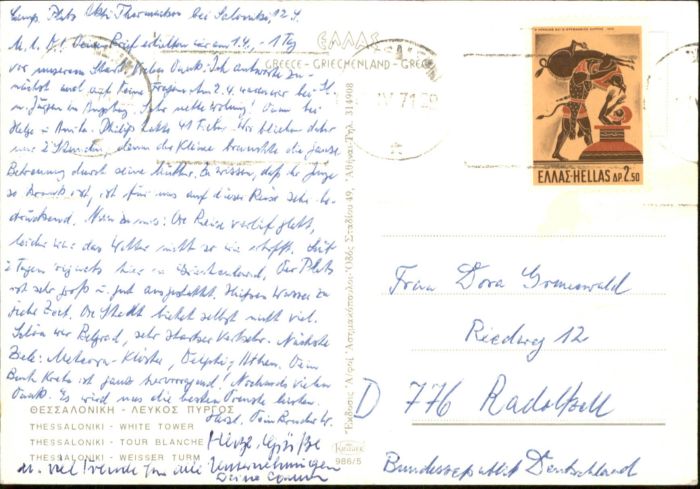 Camp. Platz bei Saloniki 12.4.
M. l. D! Deinen Brief erhielten wir am 1.4. - 1 Tag
vor unserem Start. Vielen Dank! Ich antworte zu-
nächst mal auf keine Fragen. Am 2.4. waren wir bei
u. Jürgen in Augsburg. Sehr nette Wohnung! Dann bei
Helge u. Anita. Philip hatte 41 Fieber. Wir blieben daher
nur 2 Stunden, denn der Kleine brauchte die ganze
Betreuung durch seine Mutter. Zu wissen, daß der Junge
so krank ist, ist für uns auf dieser Reise sehr be-
drückend. Nun zu uns: Die Reise verlief glatt,
leider war das Wetter nicht so wie erhofft. Seit
2 Tagen regnets hier in Griechenland. Der Platz
ist sehr groß u. gut ausgestattet. Heißes Wasser zu
jeder Zeit. Die Stadt bietet selbst nicht viel.
Schön war Belgrad, sehr starker Verkehr. Nächste
Ziele: Meteora-Klöster, Delphi, Athen. Dein
Buch Kreta ist ganz hervorragend! Nochmals vielen
Dank. Es wird uns die besten Dienste leisten.
Herzl. Dein Bruder W.
Herzl. Grüße
u. viel Freude für alle Unternehmungen
Deine
ΘΕΣΣΑΛΟΝΙΚΗ - ΛΕΥΚΟΣ ΠΥΡΓΟΣ
THESSALONIKI - WHITE TOWER
THESSALONIKI - TOUR BLANCHE
THESSALONIKI - WEISSER TURM
986/5
ΕΛΛΑΣ
GREECE - GRIECHENLAND - GRECE
IV.71.20
ΕΛΛΑΣ-HELLAS ΔΡ 2.50
Ἐκδόσεις Ἀφοὶ Ἀσημακόπουλοι-Ὁδὸς Σταδίου 49, Ἀθῆναι-Τηλ. 314908
Frau Dora Grunewald
Riedweg 12
D 776 Radolfzell
Bundesrepublik Deutschland